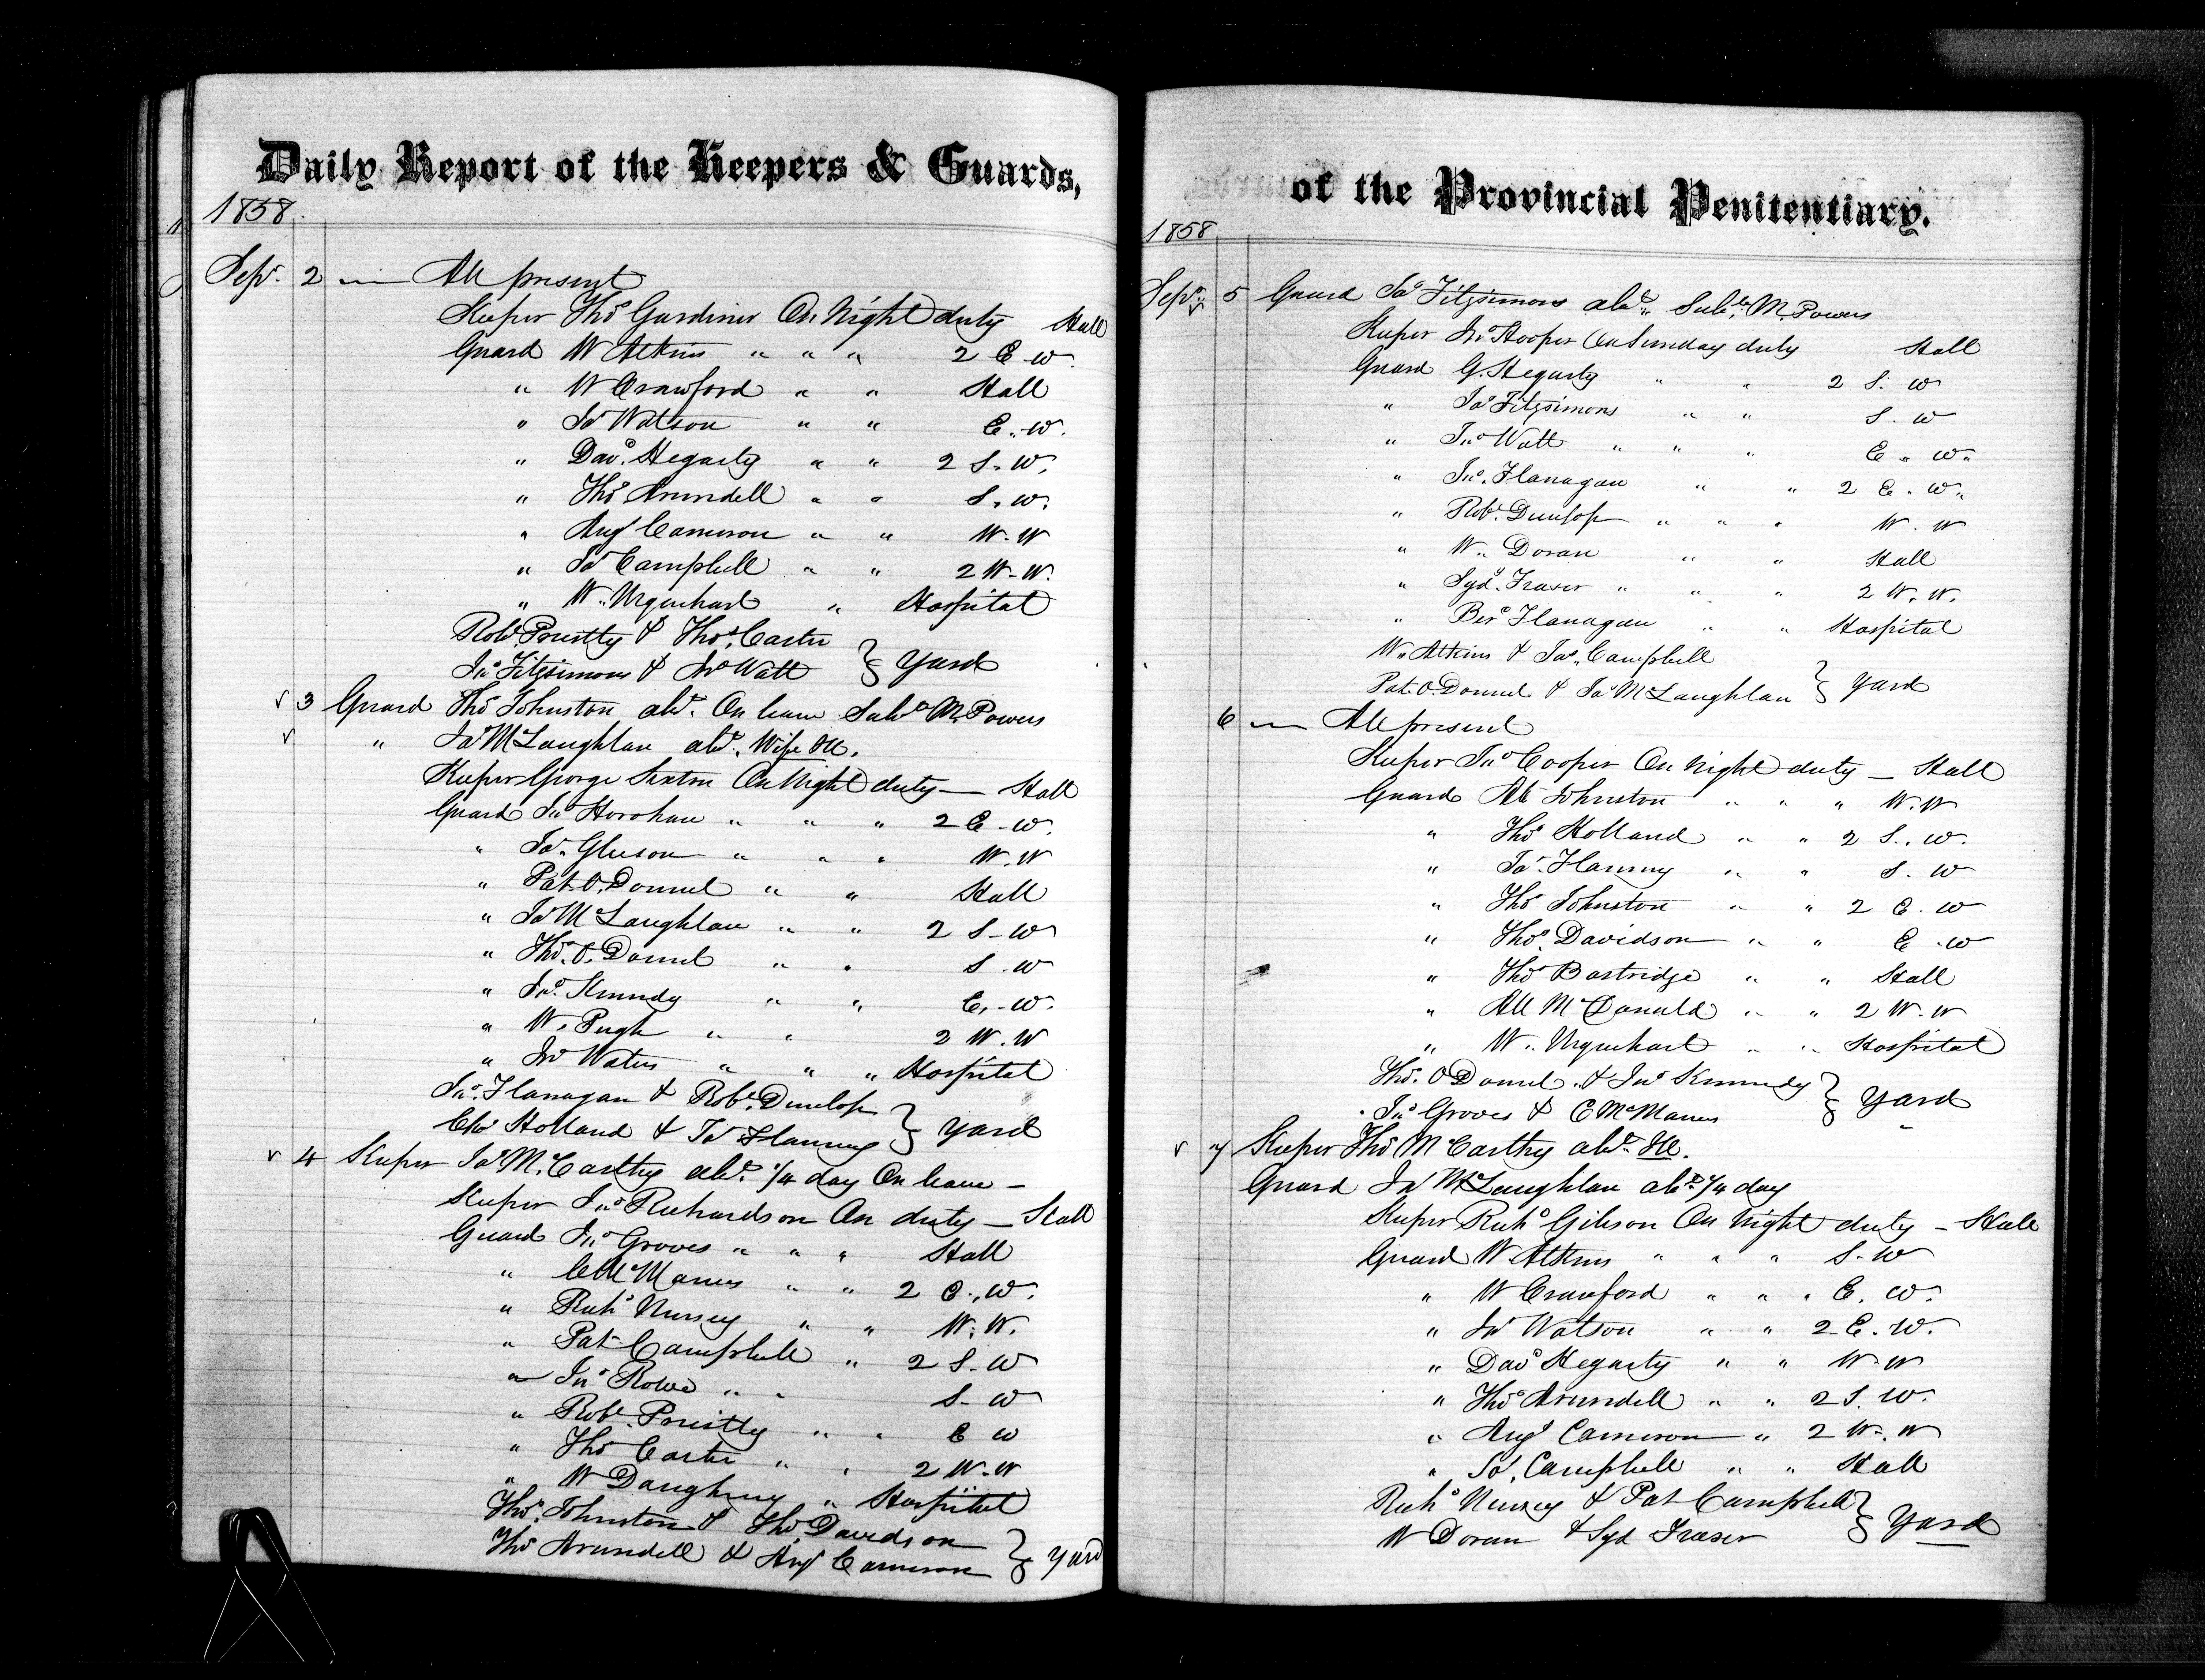 Daily Report of the Keepers & Guards,
1858
Sepr. 2 — All present
Keeper Thos Gardiner On Night duty Hall
Guard W Atkins " " " 2 E. W.
" W Crawford " " Hall
" Jas Watson " " E. W.
" Davd. Hegarty " " 2 S. W.
" Thos Arundell " " S. W.
" Angs Cameron " " W. W
" Jas Campbell " " 2 W. W.
" W. Urquhart " Hospital
Robt. Priestly & Thos. Carter
Jas Fitzsimons & Jno Watt } Yard
✓ 3 Guard Thos Johnston abt. On leave Subte M. Powers
✓ " Jas McLaughlan abt. Wife Ill.
Keeper George Sexton On Night duty — Hall
Guard Jno Horohan " " " 2 E. W.
" Jas. Gleeson " " " W. W
" Pat O. Donnel " " Hall
" Jas McLaughlan " " 2 S. W
" Thos. O. Donnel " " S. W
" Jno. Kennedy " " E. W.
" W. Pugh " " 2 W. W
" Jno Waters " " " Hospital
Jno. Flanagan & Robt. Dunlop
Chs Holland & Jas Flanney } Yard
✓ 4 Keeper Jas McCarthy abt. 1/4 day On leave —
Keeper Jno Richardson On duty — Hall
Guard Jno Groves " " " Hall
" C McManus " " 2 E. W.
" Richd Nursey " " W. W.
" Pat Campbell " 2 S. W
" Jno Rowe " " S. W
" Robt. Priestly " " E W
" Thos Carter " " 2 W. W
" W Daughney " Hospital
Thos. Johnston & Thos. Davidson
Thos Arundell & Angs Cameron } Yard
of the Provincial Penitentiary.
1858
Sepr. ✓ 5 Guard Jas Fitzsimons abt. Subte M. Powers
Keeper Jno Hooper On Sunday duty Hall
Guard G. Hegarty " " 2 S. W
" Jas Fitzsimons " " S. W
" Jno Watt " " " E. W.
" Jno. Flanagan " " 2 E. W.
" Robt. Dunlop " " " W. W
" W. Doran " " Hall
" Syd. Fraser " " " 2 W. W.
" Bird Flanagan " " Hospital
W. Atkins & Jas. Campbell
Pat O. Donnel & Jas McLaughlan } Yard
6 — All present
Keeper Jno Cooper On Night duty — Hall
Guard Al Johnston " " " W. W
" Thos Holland " " 2 S. W.
" Jas. Flanney " " S. W
" Thos Johnston " " 2 E. W
" Thos. Davidson " " E. W
" Thos Bartridge " " Hall
" All McDonald " " 2 W. W
" W. Urquhart " " Hospital
Thos. O Donnel. & Jno Kennedy
Jno Groves & C McManus } Yard
✓ 7 Keeper Thos McCarthy abt. Ill.
Guard Jas McLaughlan abt. 1/4 day
Keeper Richd Gibson On Night duty — Hall
Guard W. Atkins " " " S. W
" W Crawford " " " E. W.
" Jas Watson " " 2 E. W.
" Davd Hegarty " " W. W
" Thos Arundell " " 2 S. W.
" Angs Cameron " 2 W. W
" Jas. Campbell " " Hall
Richd Nursey & Pat Campbell
W Doran & Syd Fraser } Yard